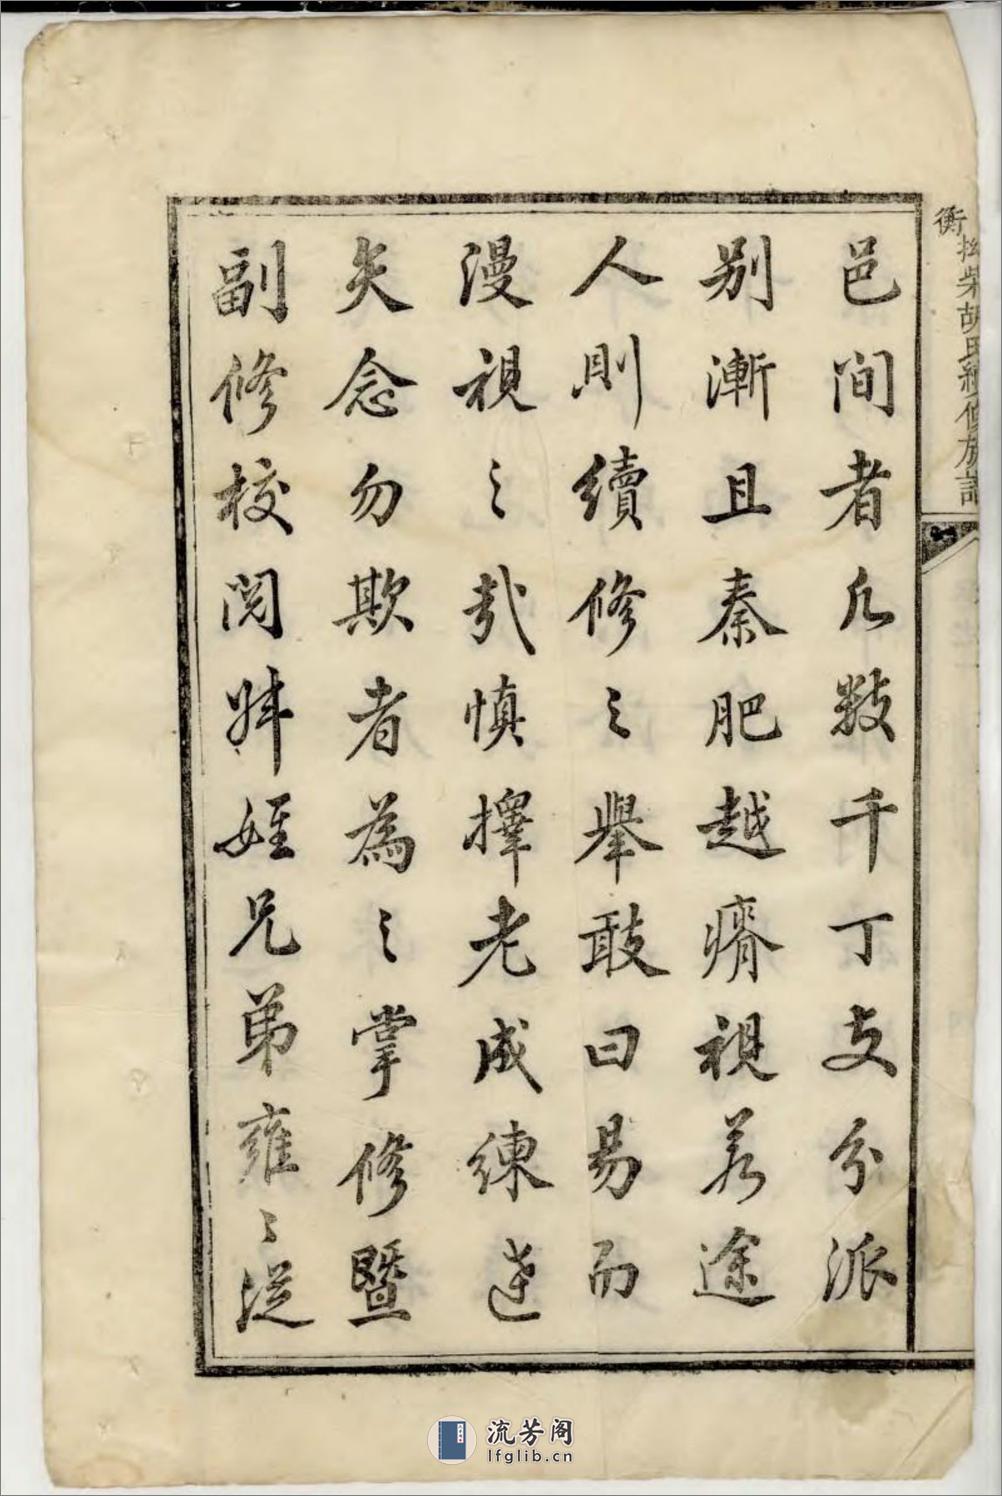 邑间者几數千丁支分派
别漸且秦肥越瘠視若途
人則續修之舉敢曰易而
漫視之哉慎擇老成練達
矢念勿欺者為之掌修暨
副修校閱叔姪兄弟雍〻從
衡 胡氏續修族譜
流芳阁
lfglib.cn